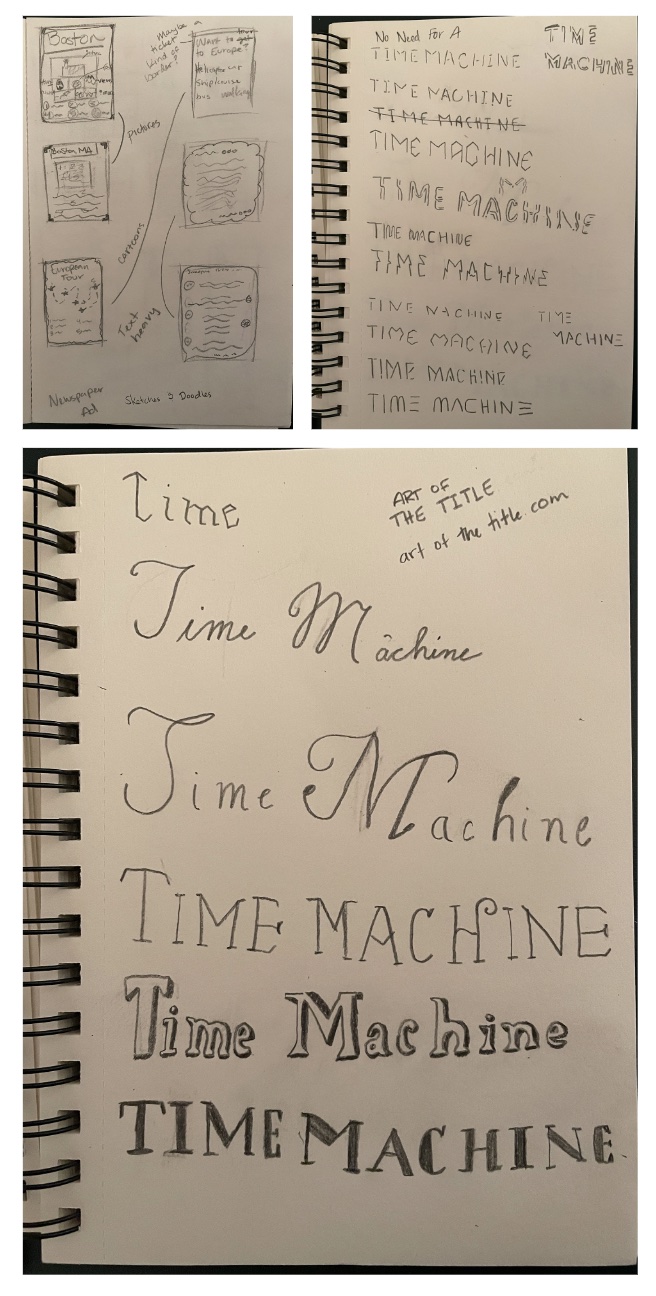 Boston
Maybe a
ticket
kind of
border?
Want to get
to Europe?
pictures
Boston MA
cartoons
European
Tour
Text
heavy
Newspaper
Ad
Sketches & Doodles
No Need For A
TIME MACHINE
TIME MACHINE
TIME MACHINE
TIME MACHINE
M
TIME MACHINE
TIME MACHINE
TIME MACHINE
TIME MACHINE
TIME MACHINE
TIME MACHINE
TIME MACHINE
TIME
MACHINE
TIME
MACHINE
Time
ART OF
THE TITLE
art of the title.com
Time Machine
Time Machine
TIME MACHINE
Time Machine
TIME MACHINE